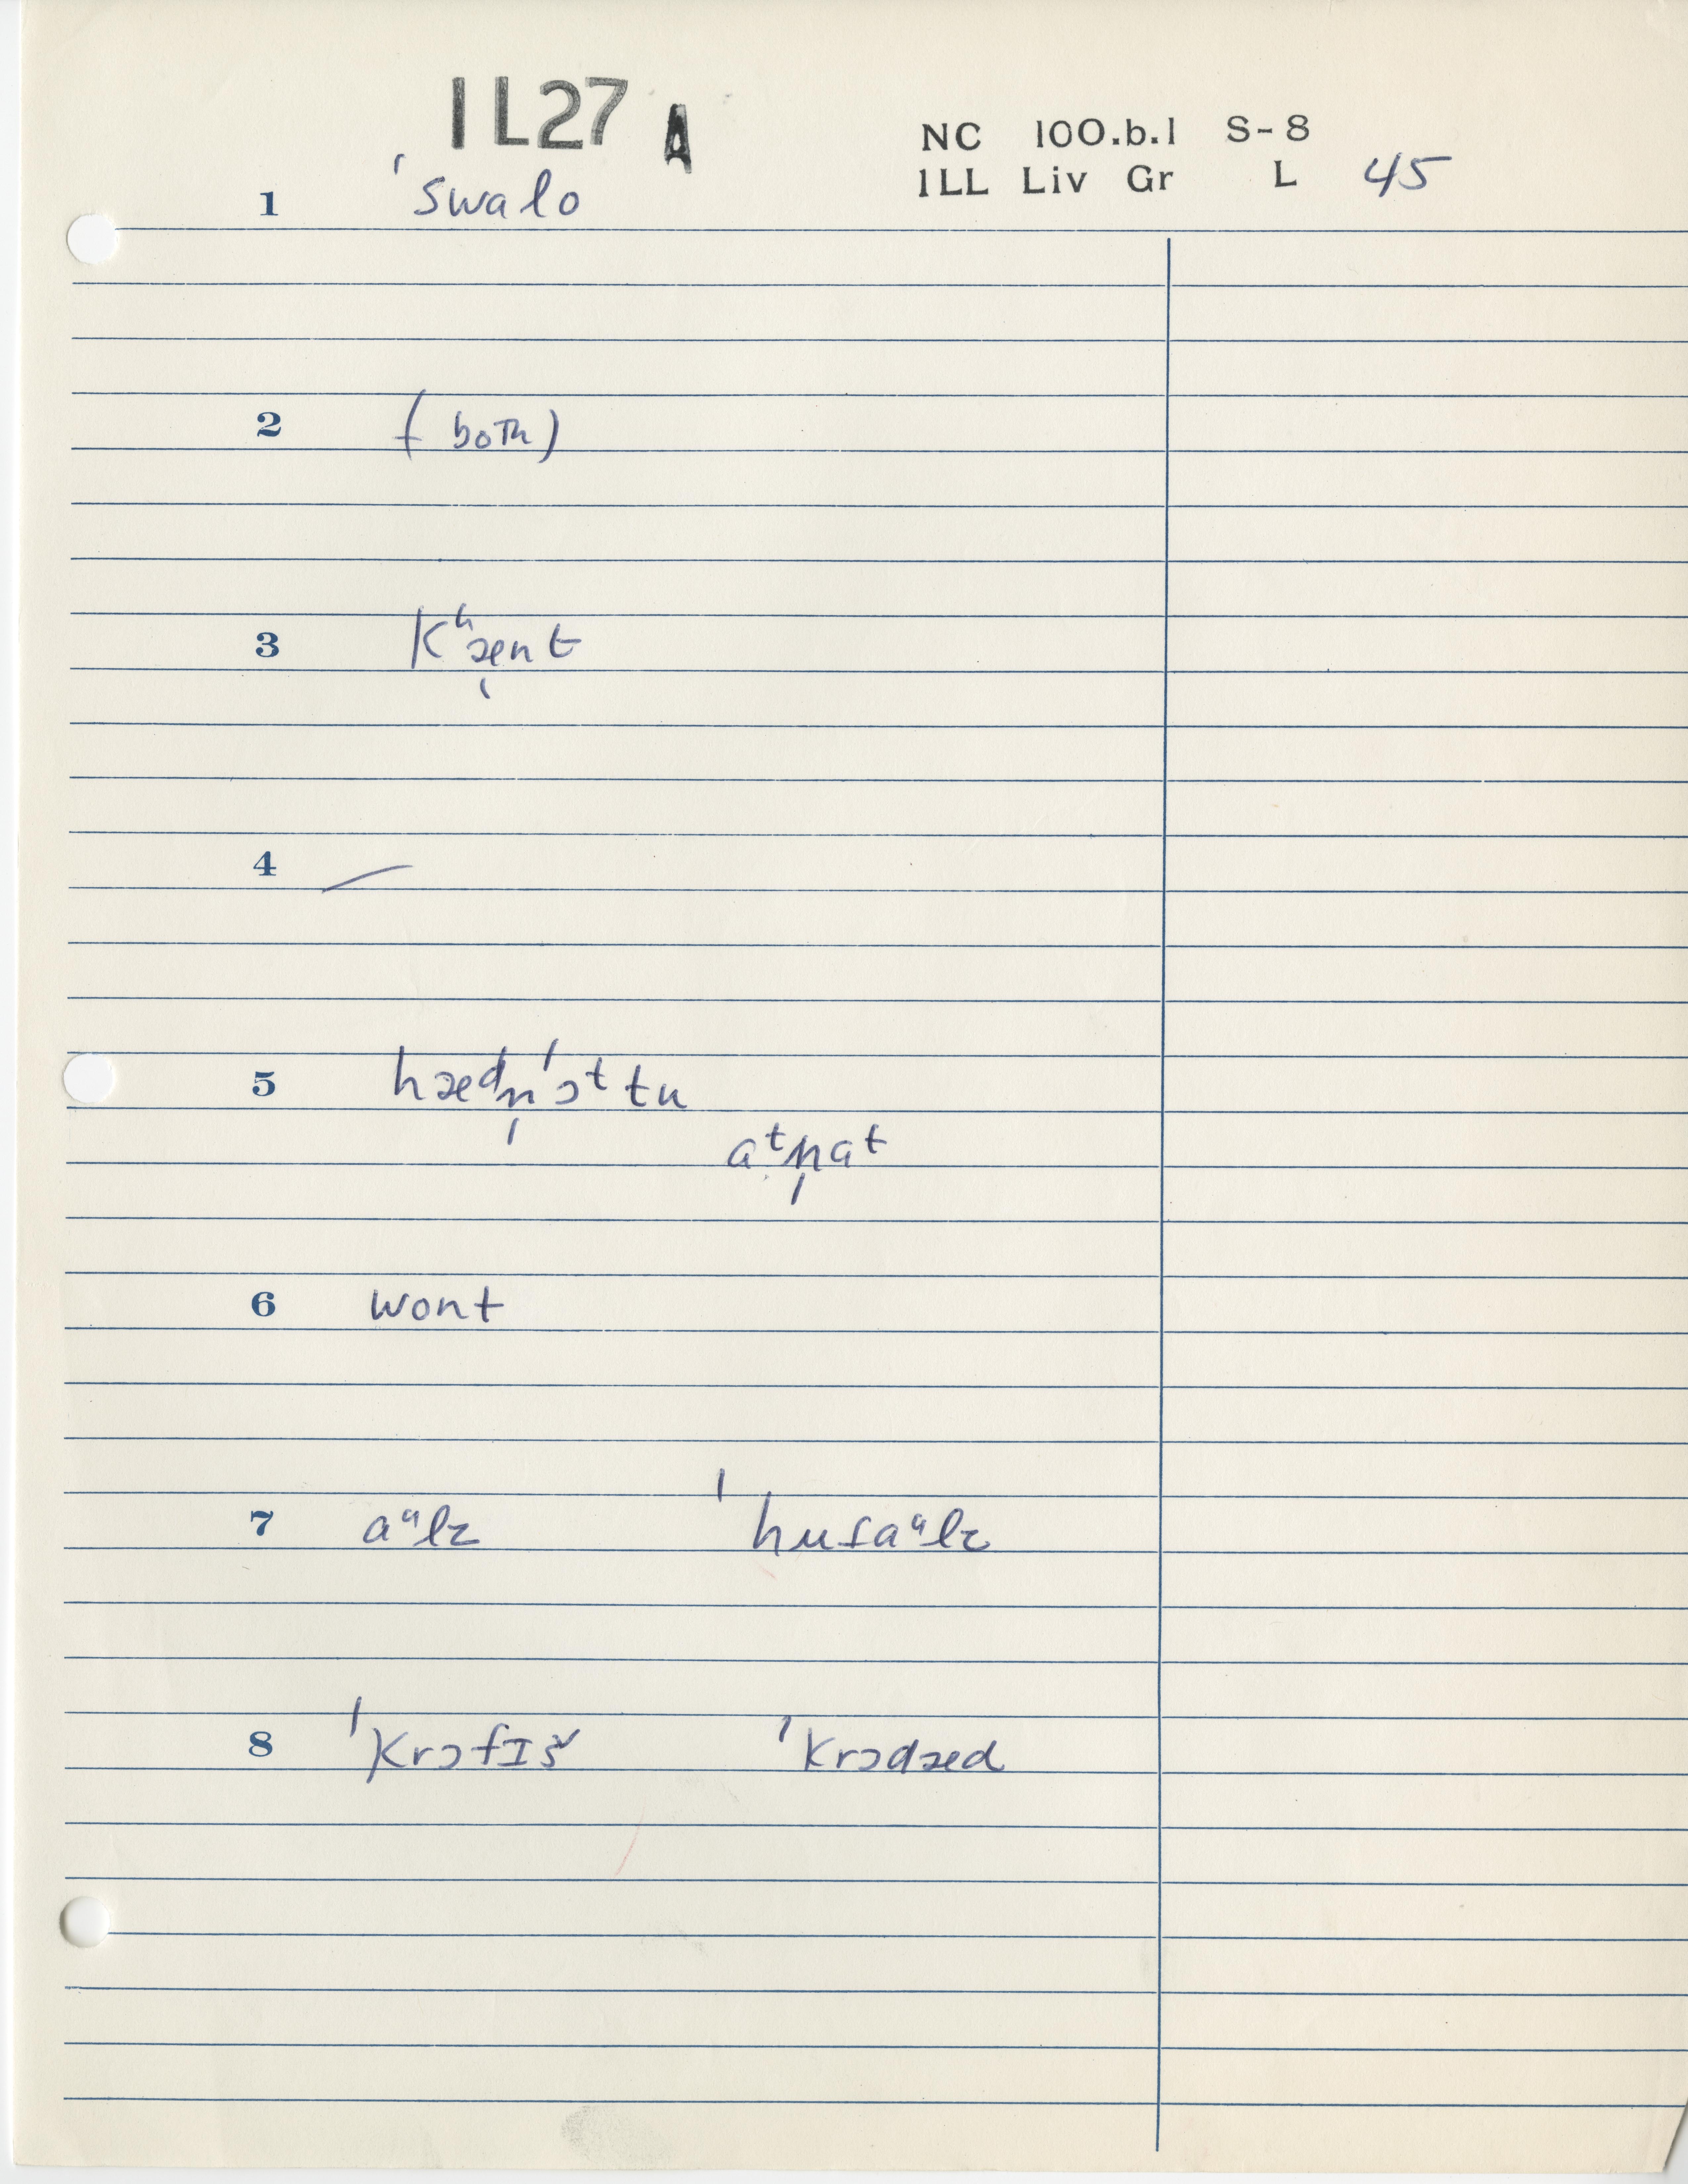 1L27 A
NC 100.b.1 S-8
1LL Liv Gr L 45
1 ˈswalo
2 (both)
3 Kʰæ̩nt
4 —
5 hædn̩ˈɔᵗ tu
aᵗn̩at
6 wont
7 aᵘlz ˈhusaᵘlz
8 ˈKrɔfIš ˈKrɔdæd